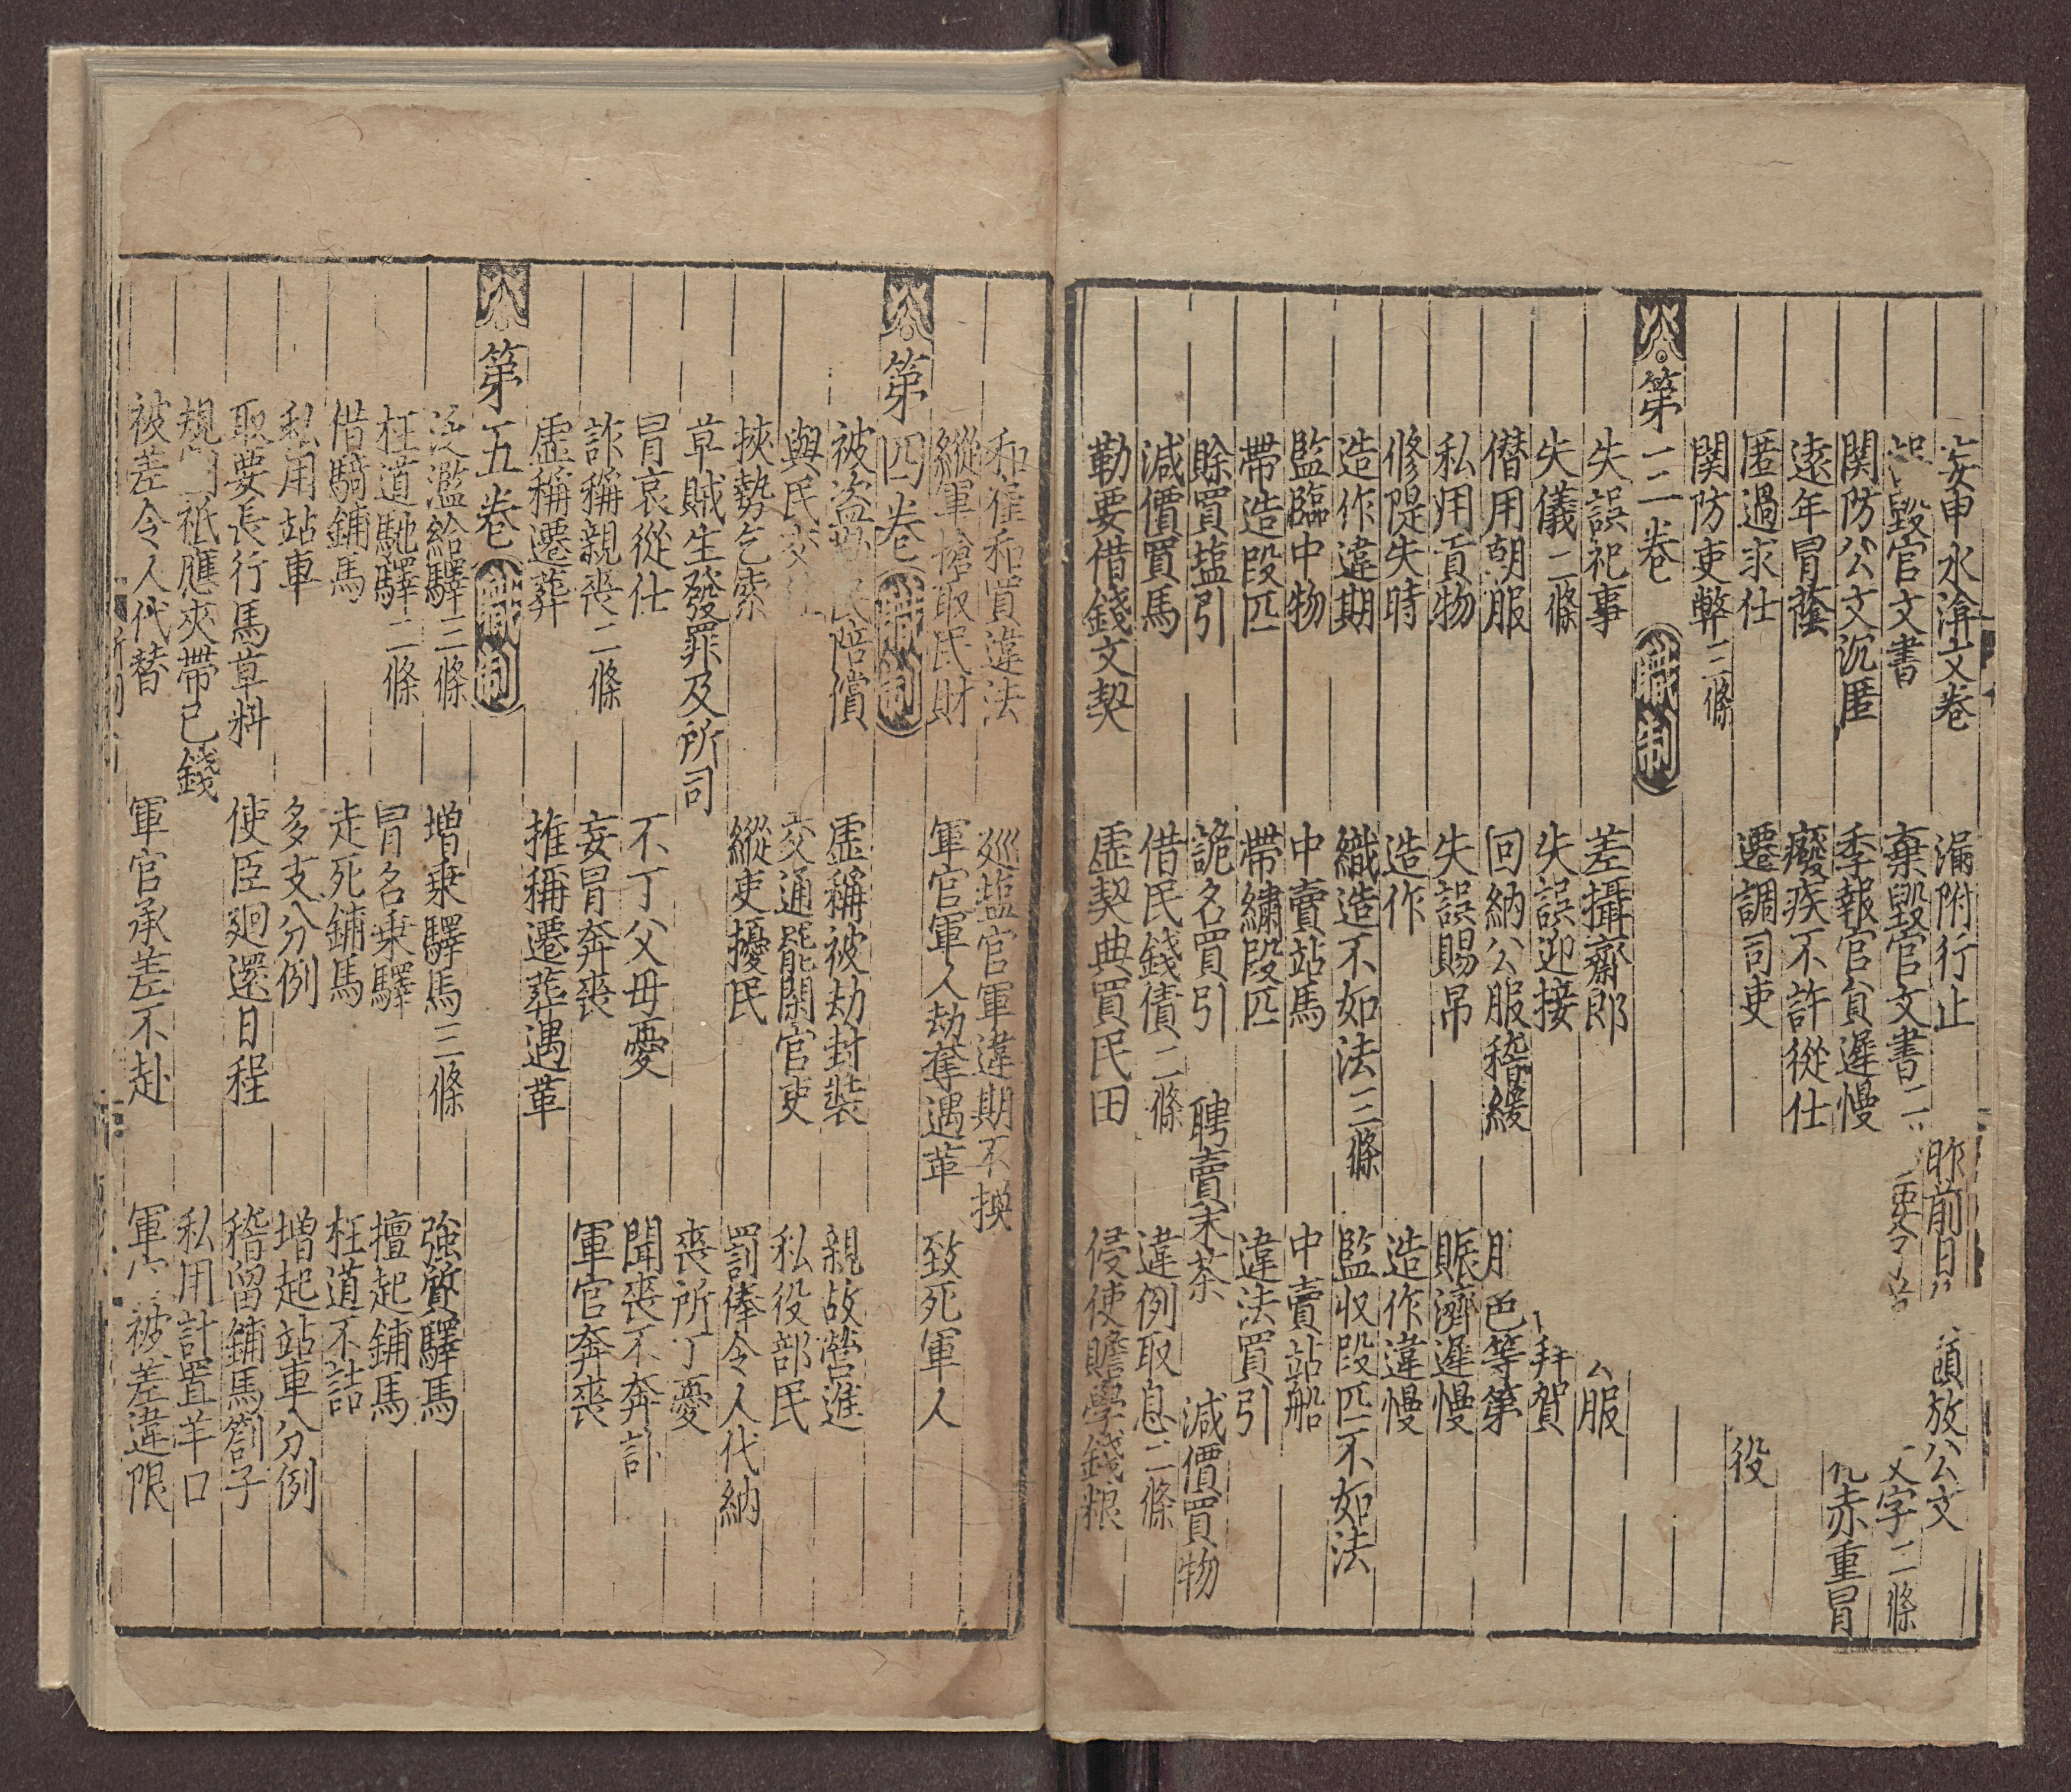 妄申水渰文卷 漏附行止 昨前日 須放公文
毀官文書 棄毀官文書二 文字二條
関防公文沉匿 季報官員遲慢
遠年冒蔭 癈疾不許從仕 赤重冒
匿過求仕 遷調司吏 役
関防吏弊三條
第三卷 職制
失誤祀事 差攝齋郎 公服
失儀二條 失誤迎接 拜賀
僣用朝服 回納公服稽緩 服色等第
私用貢物 失誤賜帛 賑濟遲慢
修隄失時 造作 造作違慢
造作違期 織造不如法三條 監収段匹不如法
監臨中物 中賣站馬 中賣站船
帶造段匹 帶繡段匹 違法買引
賖買塩引 詭名買引 聘賣末茶 減價買物
減價買馬 借民錢債二條 違例取息二條
勒要借錢文契 虚契典買民田 侵使贍學錢粮
和雇和買違法 廵塩官軍違期不換
縱軍搶取民財 軍官軍人劫奪遇革 致死軍人
第四卷 職制
被盜勒民陪償 虚稱被劫封裝 親故營進
與民交 交通罷閑官吏 私役部民
挾勢乞索 縱吏擾民 罰俸令人代納
草賊生發罪及所司 喪所丁憂
冒哀從仕 不丁父母憂 聞喪不奔訃
詐稱親喪二條 妄冒奔喪 軍官奔喪
虚稱遷葬 推稱遷葬遇革
第五卷 職制
泛濫給驛三條 増乗驛馬三條 強質驛馬
枉道馳驛二條 冒名乗驛 擅起鋪馬
借騎鋪馬 走死鋪馬 枉道不詰
私用站車 多支分例 増起站車分例
取要長行馬草料 使臣廻還日程 稽留鋪馬劄子
規 祗應夾帶已錢 私用計置羊口
被差令人代替 軍官承差不赴 軍官被差違限